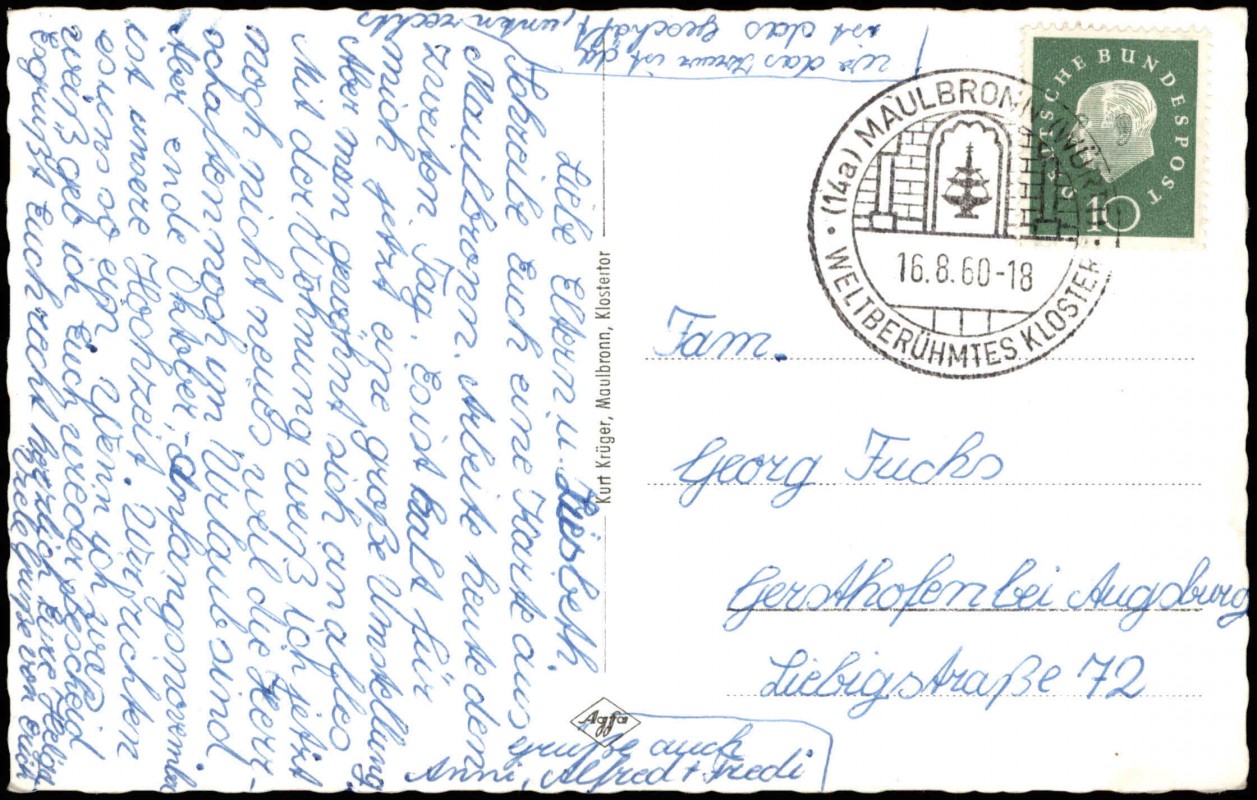 Liebe Eltern u. Liesbeth.
Schreibe Euch eine Karte aus
Maulbronn. Arbeite heute den
zweiten Tag. Es ist halt für
mich jetzt eine große Umstellung
Aber man gewöhnt sich an alles
Mit der Wohnung weiß ich jetzt
noch nichts neues weil die Herr-
schaften noch im Urlaub sind
Aber ende Oktober, anfang November
ist unsere Hochzeit. Wir richten
es uns so ein. Wenn ich was
weiß geb ich Euch wieder bescheid
Es grüßt Euch recht herzlich Eure
Viele Grüße von Euch
wo das Kreuz ist da
ist das Geschäft, unten rechts
Kurt Krüger, Maulbronn, Klostertor
Agfa
Grüße auch
Anni, Alfred + Friedi
DEUTSCHE BUNDESPOST
10
(14a) MAULBRONN (WÜRTT)
16.8.60-18
WELTBERÜHMTES KLOSTER
Fam.
Georg Fuchs
Gersthofen bei Augsburg
Liebigstraße 72